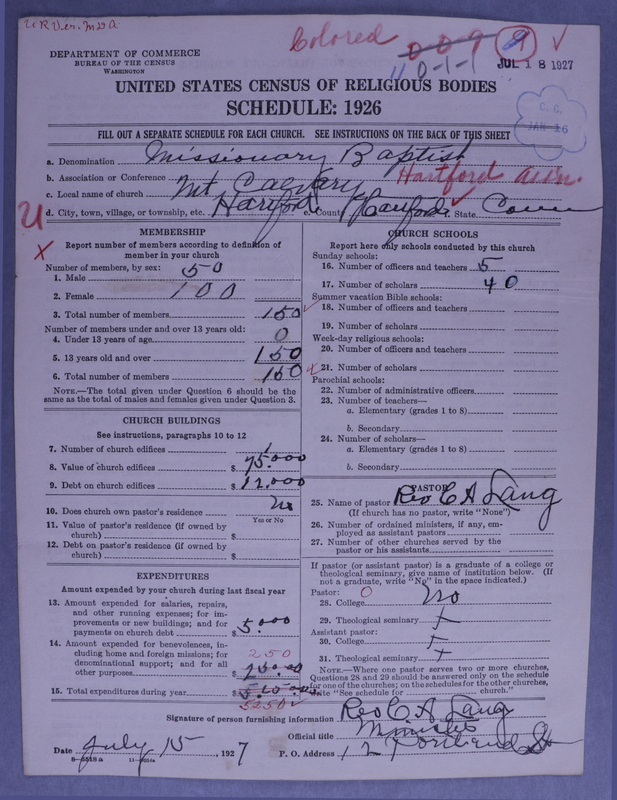 U R Ver. M29A
Colored
009
9
11 0-1-1
JUL 18 1927
DEPARTMENT OF COMMERCE
BUREAU OF THE CENSUS
WASHINGTON
UNITED STATES CENSUS OF RELIGIOUS BODIES
SCHEDULE: 1926
C. C.
JAN 16
FILL OUT A SEPARATE SCHEDULE FOR EACH CHURCH. SEE INSTRUCTIONS ON THE BACK OF THIS SHEET
a. Denomination Missionary Baptist
b. Association or Conference Hartford Assn.
c. Local name of church Mt Calvary
U d. City, town, village, or township, etc. Harford e. County Harford f. State Conn
MEMBERSHIP
X Report number of members according to definition of
member in your church
Number of members, by sex:
1. Male 50
2. Female 100
3. Total number of members 150
Number of members under and over 13 years old:
4. Under 13 years of age 0
5. 13 years old and over 150
6. Total number of members 150
NOTE.—The total given under Question 6 should be
same as the total of males and females given under Question 3.
CHURCH BUILDINGS
See instructions, paragraphs 10 to 12
7. Number of church edifices 1
8. Value of church edifices $ 75.000
9. Debt on church edifices $ 12.000
10. Does church own pastor's residence No
Yes or No
11. Value of pastor's residence (if owned by
church) $
12. Debt on pastor's residence (if owned by
church) $
EXPENDITURES
Amount expended by your church during last fiscal year
13. Amount expended for salaries, repairs,
and other running expenses; for im-
provements or new buildings; and for
payments on church debt $ 5.000
14. Amount expended for benevolences, in-
cluding home and foreign missions; for
denominational support; and for all
other purposes 250
15. Total expenditures during year $
5250
CHURCH SCHOOLS
Report here only schools conducted by this church
Sunday schools:
16. Number of officers and teachers 5
17. Number of scholars 40
Summer vacation Bible schools:
18. Number of officers and teachers
19. Number of scholars
Week-day religious schools:
20. Number of officers and teachers
21. Number of scholars
Parochial schools:
22. Number of administrative officers
23. Number of teachers—
a. Elementary (grades 1 to 8)
b. Secondary
24. Number of scholars—
a. Elementary (grades 1 to 8)
b. Secondary
PASTOR
25. Name of pastor Rev C A Lang
(If church has no pastor, write "None")
26. Number of ordained ministers, if any, em-
ployed as assistant pastors
27. Number of other churches served by the
pastor or his assistants
If pastor (or assistant pastor) is a graduate of a college or
theological seminary, give name of institution below. (If
not a graduate, write "No" in the space indicated.)
Pastor: 0
28. College No
29. Theological seminary
Assistant pastor:
30. College
31. Theological seminary
NOTE.—Where one pastor serves two or more churches,
Questions 28 and 29 should be answered only on the schedule
for one of the churches; on the schedules for the other churches,
write "See schedule for church."
Signature of person furnishing information Rev C A Lang
Official title Minister
Date July 15, 1927 P. O. Address 12 Portland St
8—5518a